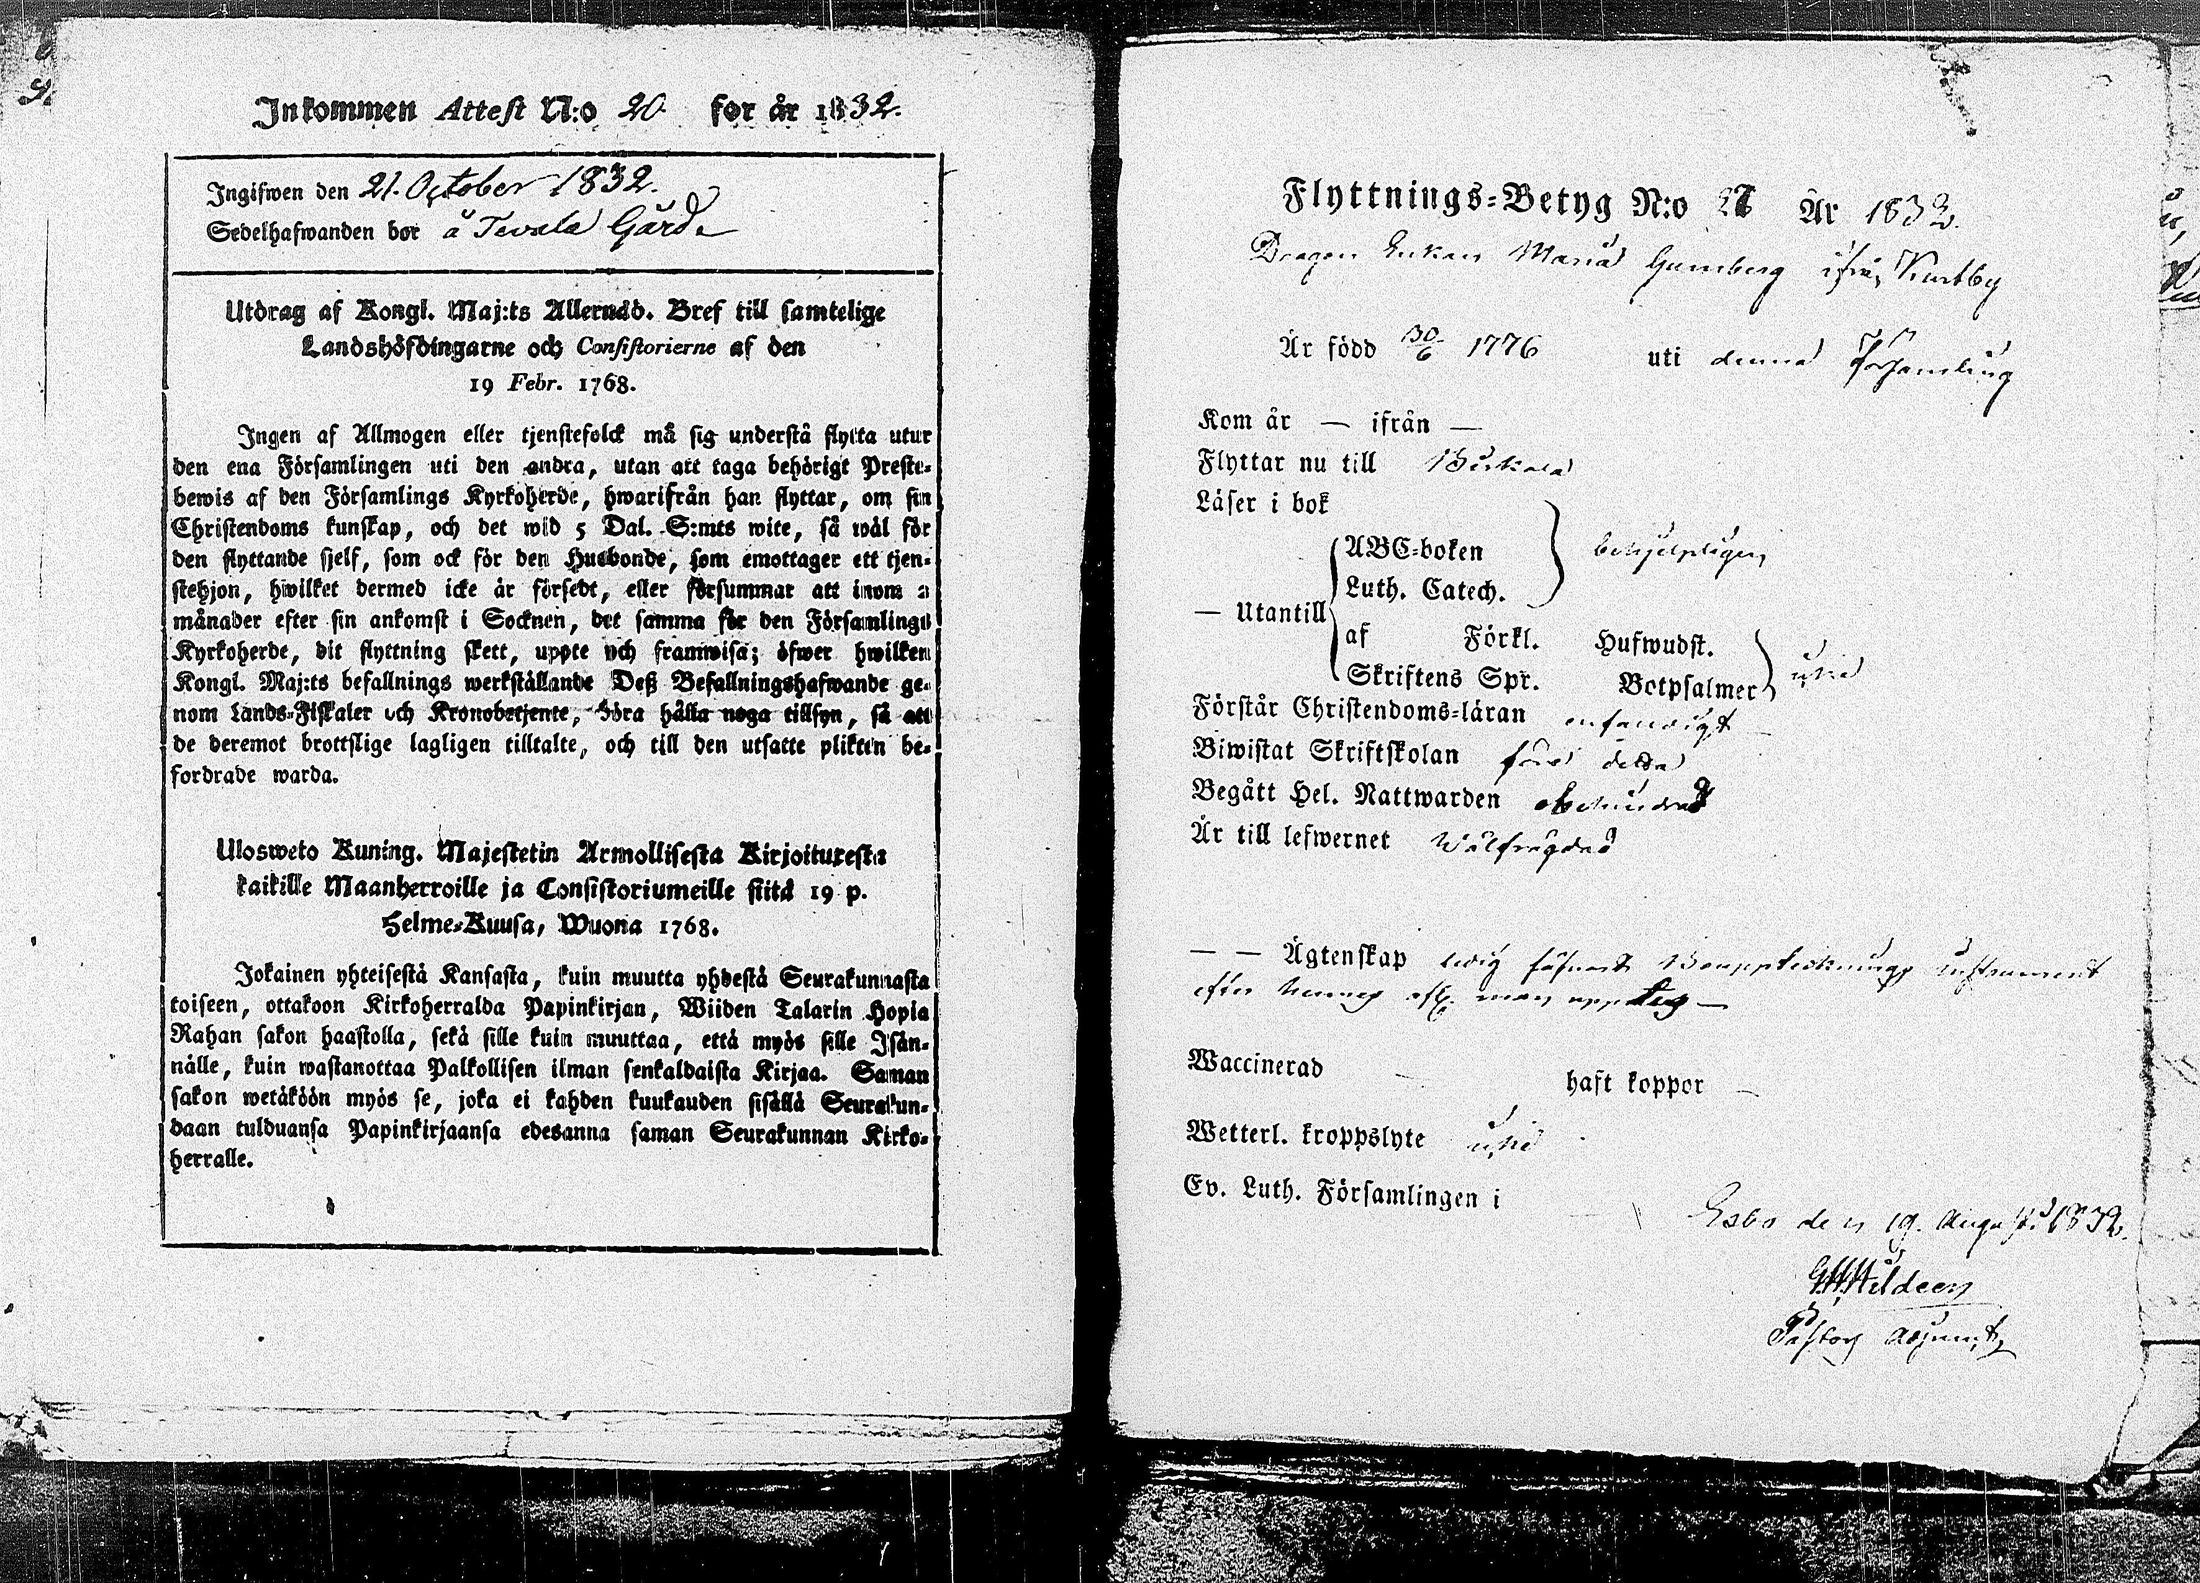 Inkommen Attest N:o 20. for år 1832.
Ingifwen den 21. October 1832.
Sedelhafwanden bor å Tevala Gård
Utdrag af Kongl. Maj:ts Allernåd. Bref till samtelige
Landshöfdingarne och Consistorierne af den
19 Febr. 1768.
Ingen af Allmogen eller tjenstefolck må sig understå flytta utur
den ena Församlingen uti den andra, utan att taga behörigt Preste-
bewis af den Församlings Kyrkoherde, hwarifrån han flyttar, om sin
Christendoms kunskap, och det wid 5 Dal. S:mts wite, så wäl för
den flyttande sjelf, som ock för den Husbonde, som emottager ett tjen-
stehjon, hwilket dermed icke är försedt, eller försummar att inom 2
månader efter sin ankomst i Socknen, det samma för den Församlings
Kyrkoherde, dit flyttning skett, uppte och framwisa; öfwer hwilken
Kongl. Maj:ts befallnings werkställande Deß Befallningshafwande ge-
nom Lands-Fiskaler och Kronobetjente, böra hålla noga tillsyn, så att
de deremot brottslige lagligen tilltalte, och till den utsatte plikten be-
fordrade warda.
Ulosweto Kuning. Majestetin Armollisesta Kirjoituxesta
kaikille Maanherroille ja Consistoriumeille siitä 19 p.
Helme-Kuusa, Wuona 1768.
Jokainen yhteisestä Kansasta, kuin muutta yhdestä Seurakunnasta
toiseen, ottakoon Kirkoherralda Papinkirjan, Wiiden Talarin Hopia
Rahan sakon haastolla, sekä sille kuin muuttaa, että myös sille Isän-
nälle, kuin wastanottaa Palkollisen ilman senkaldaista Kirjaa. Saman
sakon wetäköön myös se, joka ei kahden kuukauden sisällä Seurakun-
daan tulduansa Papinkirjaansa edesanna saman Seurakunnan Kirko-
herralle.
Flyttnings-Betyg N:o År 1832.
Dragon Enkan Maria Gumberg ifrån Kurtby
Är född 30/6 1776 uti denna Församling
Kom år — ifrån —
Flyttar nu till
Läser i bok
— Utantill
ABC-boken
Luth. Catech.
behjelpligen
af Förkl. Hufwudst.
Skriftens Spr. Botpsalmer
Förstår Christendoms-läran enfaldigt
Biwistat Skriftskolan förr detta
Begått Hel. Nattwarden obehindrad
Är till lefwernet Wälfrägdad
— — Ägtenskap ledig Bouppteckningz instrument
efter hennes afl. man
Waccinerad — haft koppor —
Wetterl. kroppslyte
Ev. Luth. Församlingen i
Esbo den 19. Augusti 1832.
Pastors Adjunct